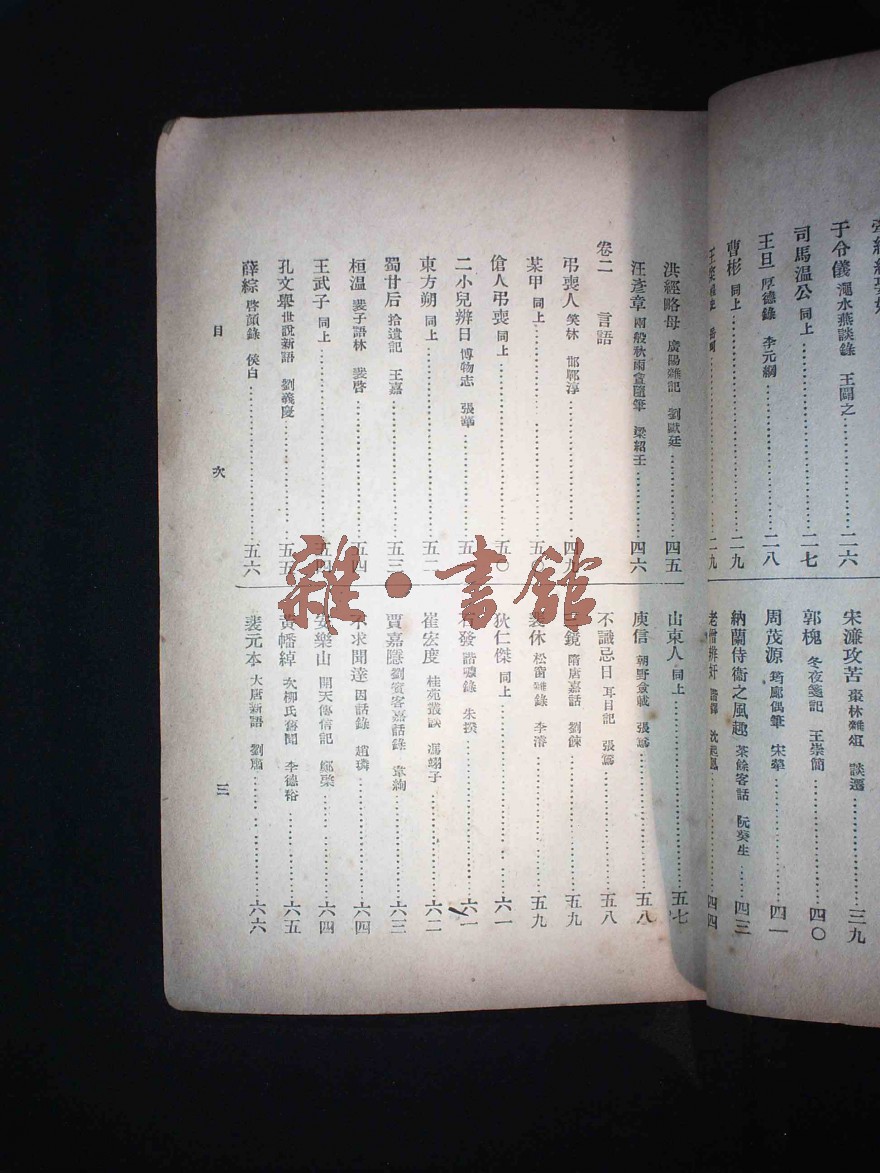 于令儀 澠水燕談錄 王闢之 二六
司馬温公 同上 二七
王旦 厚德錄 李元綱 二八
曹彬 同上 二九
二九
宋濂攻苦 棗林雜俎 談遷 三九
郭槐 冬夜箋記 王崇簡 四〇
周茂源 筠廊偶筆 宋犖 四一
納蘭侍衞之風趣 茶餘客話 阮葵生 四三
老僧辨奸 諧鐸 沈起鳳 四四
洪經略母 廣陽雜記 劉獻廷 四五
汪彥章 兩般秋雨盦隨筆 梁紹壬 四六
卷二 言語
弔喪人 笑林 邯鄲淳 四九
某甲 同上 五〇
傖人弔喪 同上 五〇
二小兒辨日 博物志 張華 五
東方朔 同上 五二
蜀甘后 拾遺記 王嘉 五三
桓温 裴子語林 裴啓 五四
王武子 同上 五四
孔文舉 世說新語 劉義慶 五五
薛綜 啓顏錄 侯白 五六
山東人 同上 五七
庾信 朝野僉載 張鷟 五八
不識忌日 耳目記 張鷟 五八
鏡 隋唐嘉話 劉餗 五九
裴休 松窗雜錄 李濬 五九
狄仁傑 同上 六一
石發 諧噱錄 朱揆 六一
崔宏度 桂苑叢談 馮翊子 六二
賈嘉隱 劉賓客嘉話錄 韋絢 六三
不求聞達 因話錄 趙璘 六四
安樂山 開天傳信記 鄭棨 六四
黄幡綽 次柳氏舊聞 李德裕 六五
裴元本 大唐新語 劉肅 六六
目 次 三
雜·書館